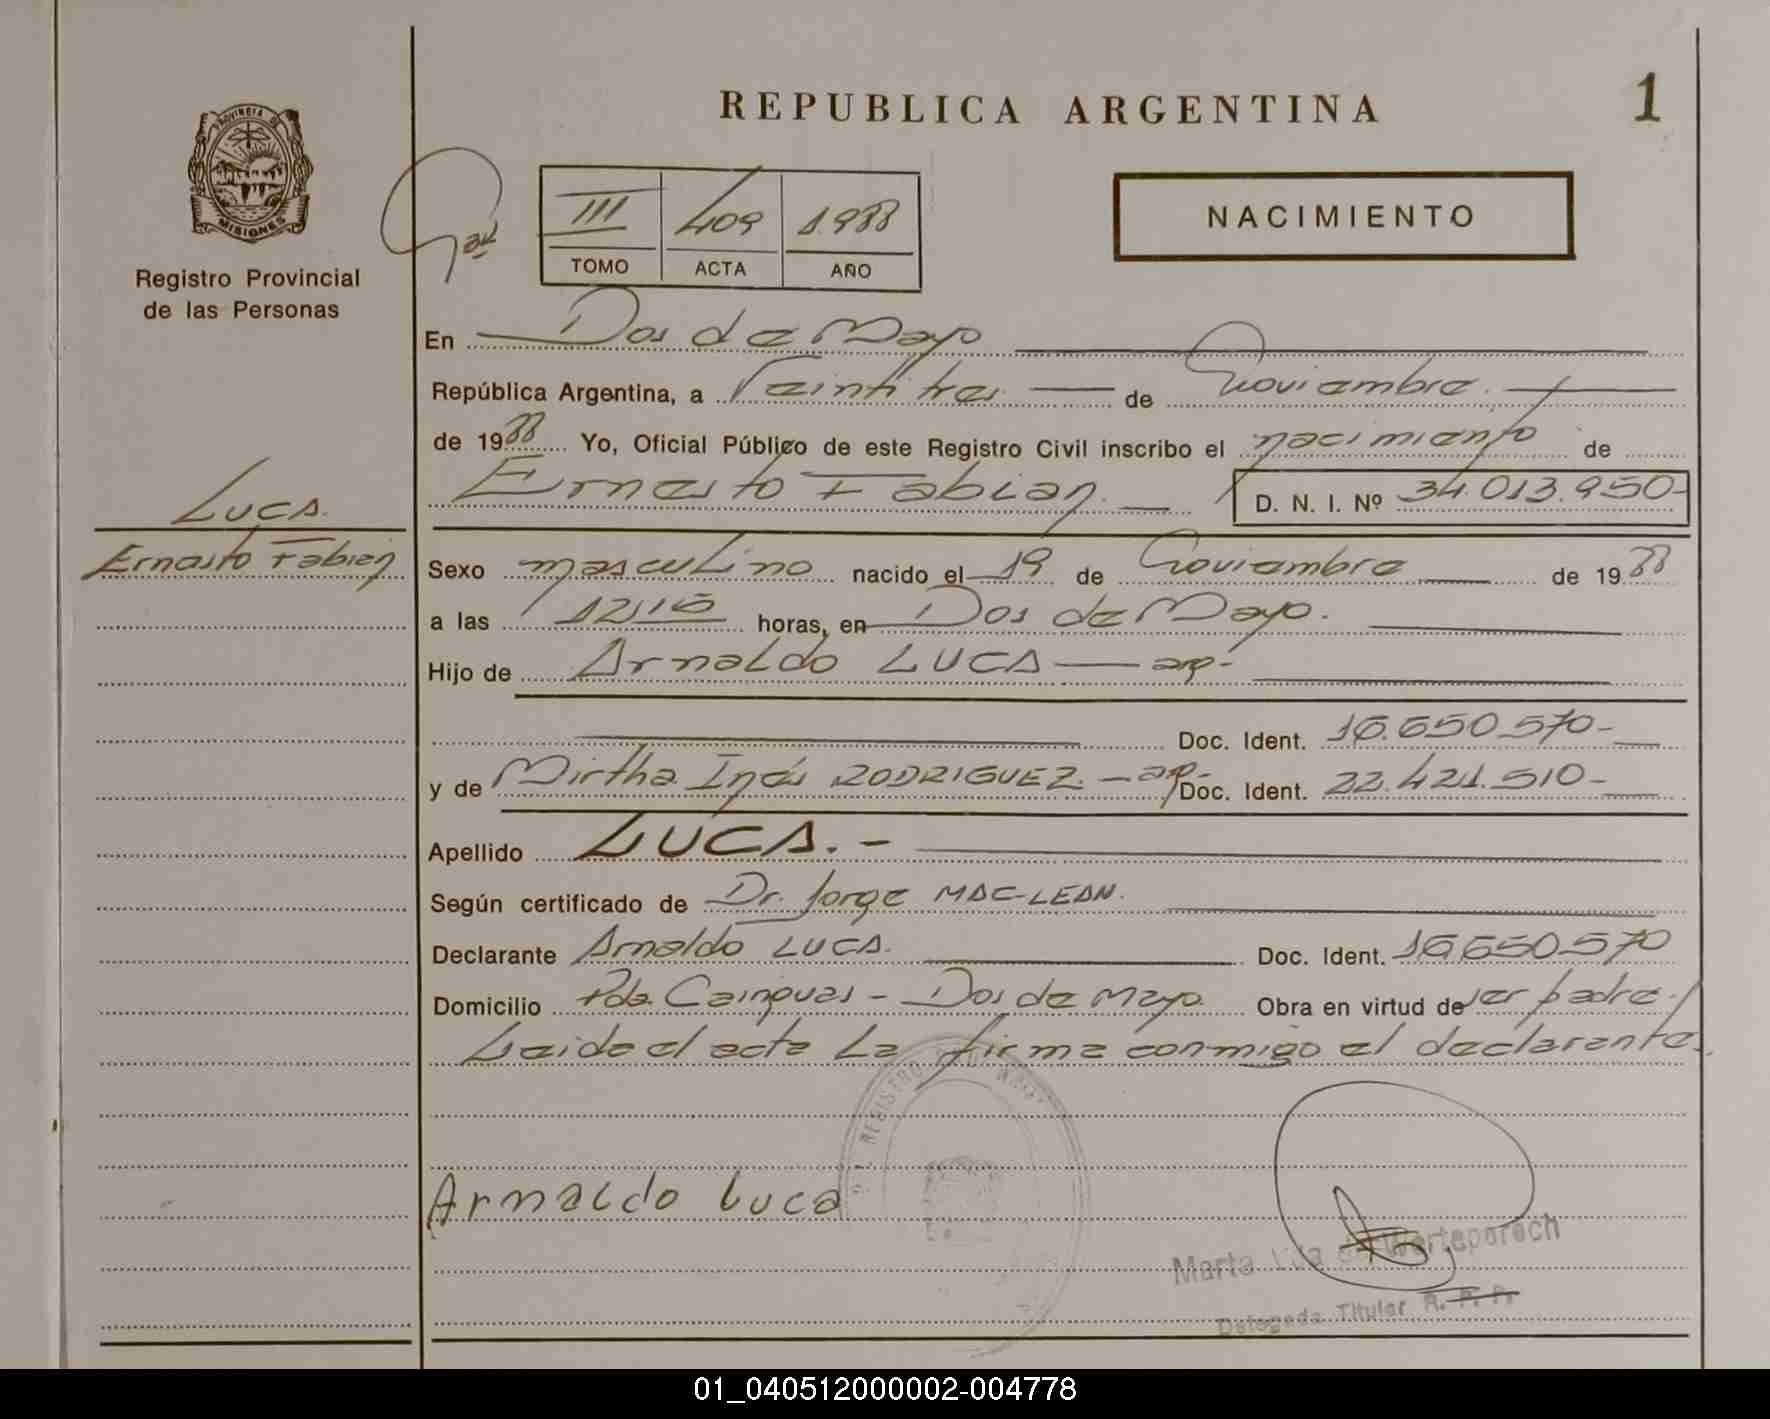 REPUBLICA ARGENTINA
1
PROVINCIA DE
MISIONES
Registro Provincial
de las Personas
III 409 1988
TOMO ACTA AÑO
NACIMIENTO
En Dos de Mayo
República Argentina, a Veintitres de Noviembre.
de 1988 Yo, Oficial Público de este Registro Civil inscribo el nacimiento de
Ernesto Fabian. D. N. I. Nº 34.013.950-
LUCA.
Ernesto Fabian
Sexo masculino nacido el 19 de Noviembre de 1988
a las 12,15 horas, en Dos de Mayo.
Hijo de Arnaldo LUCA — ap-
Doc. Ident. 16.650.570-
y de Mirtha Inés RODRIGUEZ. - ap- Doc. Ident. 22.421.510-
Apellido LUCA. -
Según certificado de Dr. Jorge MAC-LEAN.
Declarante Arnaldo LUCA. Doc. Ident. 16.650.570
Domicilio Pda. Cainguas - Dos de Mayo. Obra en virtud de ser padre.
Leida el acta La firma conmigo el declarante.
REGISTRO
Arnaldo Luca
Marta Werteporoch
Delegada Titular R. P. P.
01_040512000002-004778